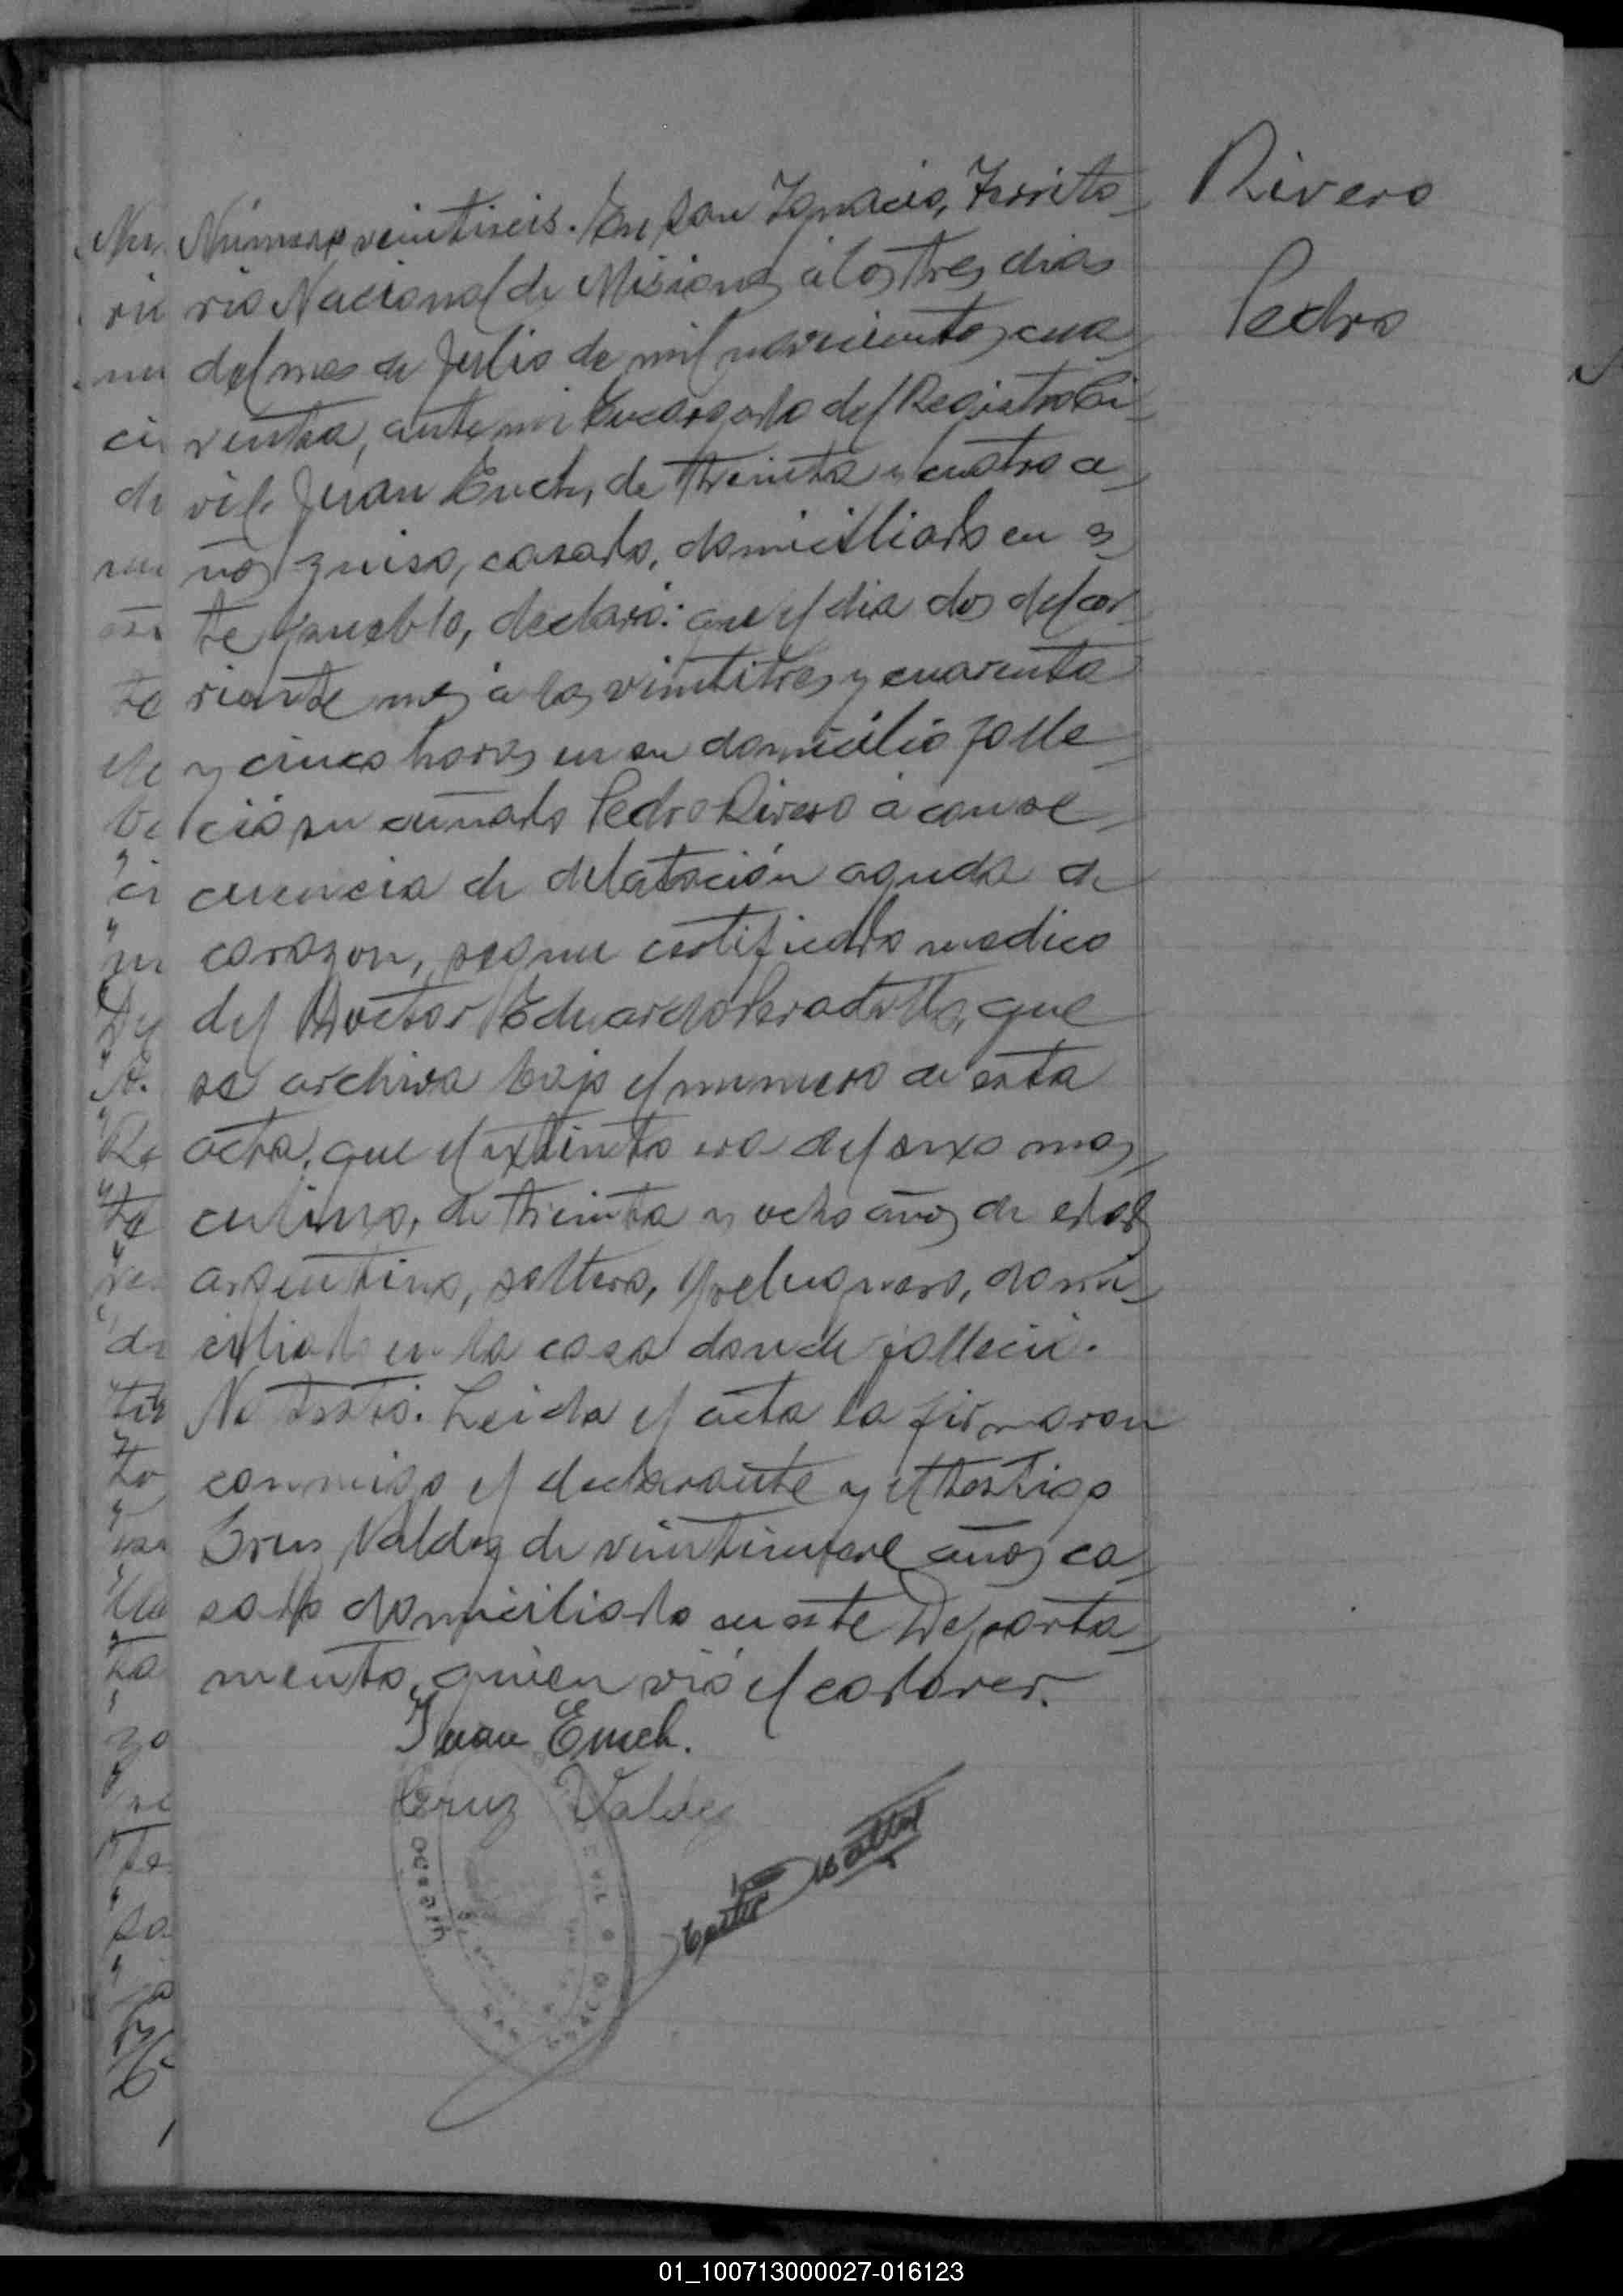 Rivero
Pedro
Número veintiseis. En San Ignacio, Territo-
rio Nacional de Misiones a los tres dias
del mes de Julio de mil novecientos cua-
renta, ante mi Encargado del Registro Ci-
vil, Juan Emch, de treinta y cuatro a-
ños, suiso, casado, domicilliado en es-
te pueblo, declaró: que el dia dos del cor-
riente mes a las veintitres y cuarenta
y cinco horas en su domicilio falle-
ció su cuñado Pedro Rivero a conse-
cuencia de delatación aguda de
corazon, segun certificado medico
del Doctor Eduardo que
se archiva bajo el numero de esta
acta, que el extinto era del sexo mas-
culino, de treinta y ocho años de edad
argentino, soltero, peluquero, domi-
ciliado en la casa donde falleció.
No testó. Leida el acta la firmaron
conmigo el declarante y el testigo
Cruz Valdez de veintinueve años ca-
sado domiciliado en este Departa-
mento, quien vió el cadaver.
Juan Emch.
Cruz Valdez
01_100713000027-016123